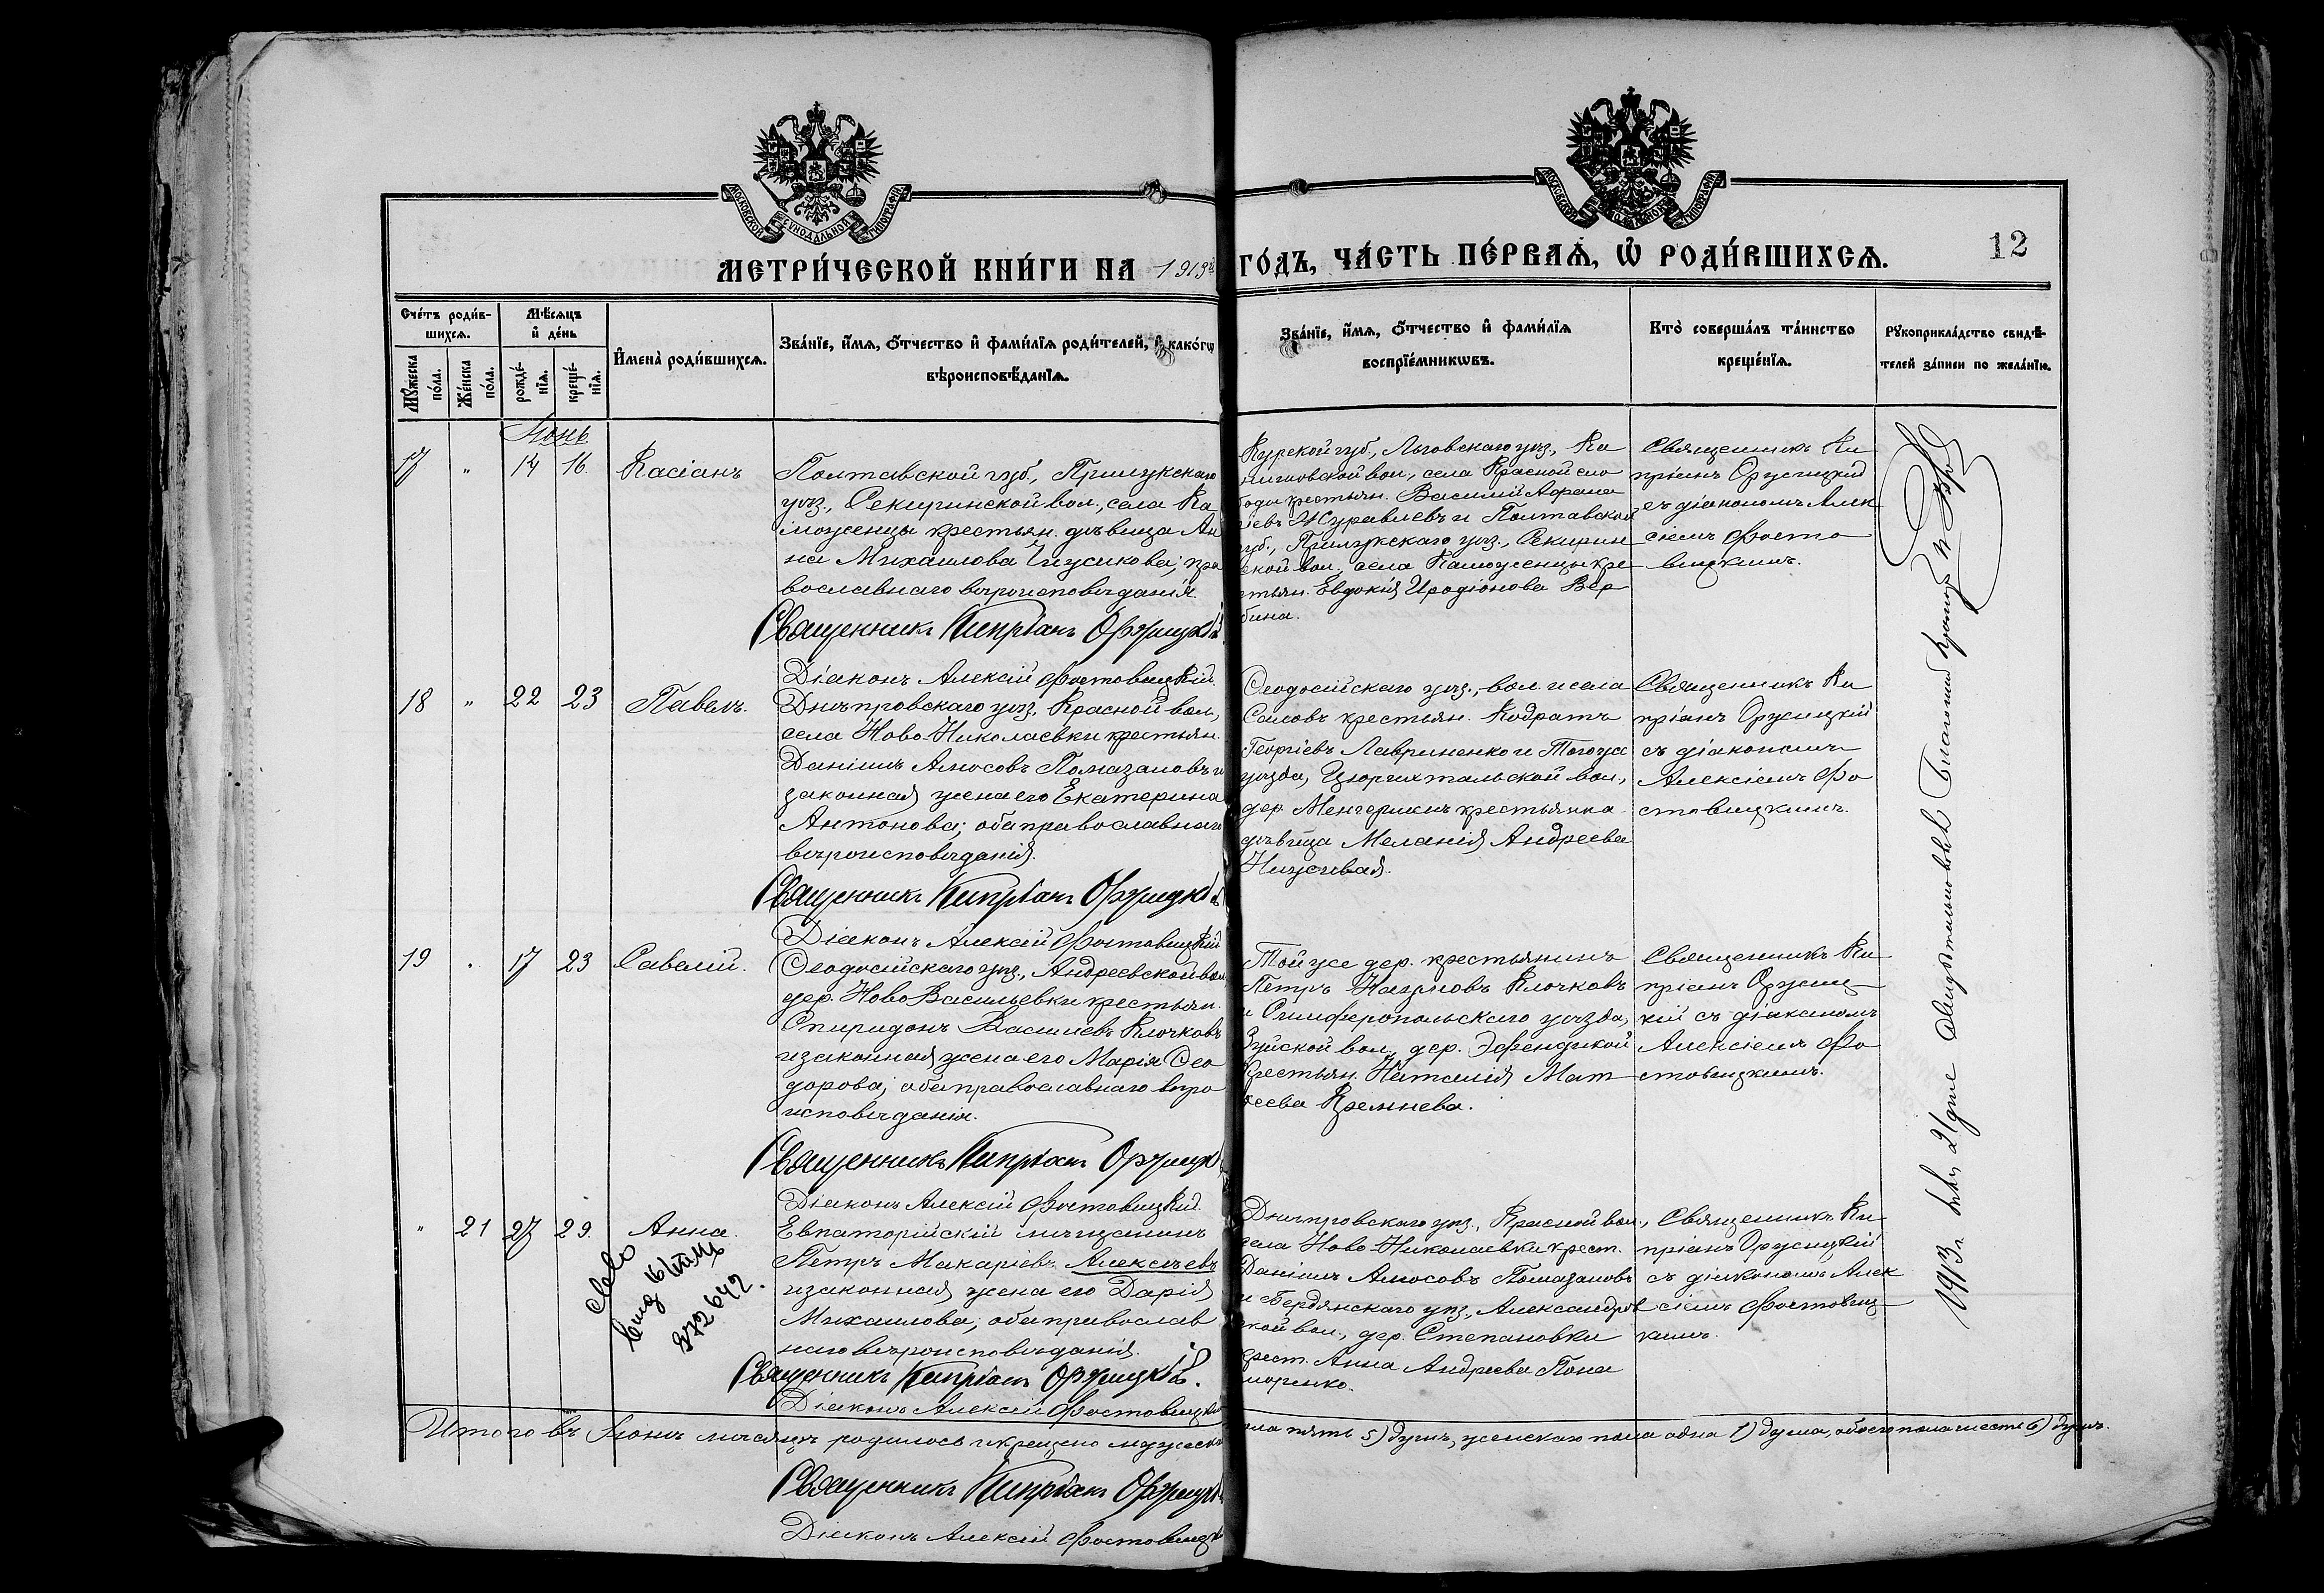 МОСКОВСКОЙ СѴНОДАЛЬНОЙ ТИПОГРАФІИ
МОСКОВСКОЙ СѴНОДАЛЬНОЙ ТИПОГРАФІИ
12
МЕТРИ́ЧЕСКОЙ КНИ́ГИ НА 1913й ГО́ДЪ, ЧА́СТЬ ПЕ́РВАѦ, Ѡ҆ РОДИ́ВШИХСѦ.
Сче́тъ роди́в-
шихсѧ.
Мѣ́сѧцъ
и҆ де́нь
Мꙋ́жеска
по́ла.
Же́нска
по́ла.
рожде́-
нїѧ.
креще́-
нїѧ.
И҆мена̀ роди́вшихсѧ.
Зва́нїе, и҆́мѧ, ѻ҆́тчество и҆ фами́лїѧ роди́телей, и҆ како́гѡ
вѣроисповѣ́данїѧ.
Зва́нїе, и҆́мѧ, ѻ҆́тчество и҆ фами́лїѧ
воспрїе́мникѡвъ.
Кто̀ соверша́лъ та́инство
креще́нїѧ.
Рꙋкоприкла́дство свидѣ́-
телей за́писи по жела́нїю.
Іюнь
17 " 14 16. Касіанъ
Полтавской губ., Прилукскаго
уѣз., Секиринской вол., села Ка
моженцы крестьян. дѣвица Ан
на Михаилова; пра
вославнаго вѣроисповѣданія
Священникъ Кипріанъ Оржицкій
Діаконъ Алексій Фостовицкій.
Курской губ., Льговскаго уѣз., Ка
вол., села Красной сло
боды крестьян. Василий Афана
сіевъ Журавлевъ и Полтавской
губ., Прилукскаго уѣз., Секирин
ской вол., села Каможенцы кре
стьян. Евдокія Иродіонова Вер
бина.
Священникъ Ки
пріанъ Оржицкій
съ діакономъ Алек
сіемъ Фосто
вицкимъ.
18 " 22 23 Павелъ.
Днѣпровскаго уѣз. Красной вол.,
села Ново-Николаевки крестьян.
Даніилъ Амосовъ Помазановъ и
законная жена его Екатерина
Антонова; оба православнаго
вѣроисповѣданія.
Священникъ Кипріанъ Оржицкій
Діаконъ Алексій Фостовицкій
Феодосійскаго уѣз., вол. и села
Саловъ крестьян. Кодратъ
Георгіевъ Лавриненко и Тогоже
уѣзда, Цюрихтальской вол.,
дер. Менгерминъ крестьянка
дѣвица Меланія Андреева
Священникъ Ки
пріанъ Оржицкій
съ діакономъ
Алексіемъ Фо
стовицкимъ.
19 . 17 23 Савелій.
Феодосійскаго уѣз., Андреевской вол.
дер. Ново Васильевки крестьян.
Спиридонъ Василіевъ Клочковъ
и законная жена его Марія Фео
дорова; оба православнаго вѣро
исповѣданія.
Священникъ Кипріанъ Оржицк
Діаконъ Алексій Фостовицкій.
Той же дер. крестьянинъ
Петръ Наумовъ Клочковъ
и Симферопольскаго уѣзда,
Зуйской вол., дер. Эфендикой
крестьян. Наталія Мат
феева Кремнева.
Священникъ Ки
пріанъ Оржиц
кій съ діакономъ
Алексіемъ Фо
стовицкимъ.
" 21 27 29. Анна.
372642.
Евпаторійскій мѣщанинъ
Петръ Макаріевъ Алексѣевъ
и законная жена его Дарія
Михаилова; оба православ
наго вѣроисповѣданія.
Священникъ Кипріанъ Оржицкій.
Діаконъ Алексій Фостовицкій
Днѣпровскаго уѣз., Красной вол.,
села Ново-Николаевки крест.
Даніилъ Амосовъ Помазановъ
и Бердянскаго уѣз., Александров
ской вол., дер. Степановки
крест. Анна Андреева Пона
моренко.
Священникъ Ки
пріанъ Оржицкій
съ діакономъ Алек
сіемъ Фостовиц
кимъ.
Итого въ Іюнѣ мѣсяцѣ родилось и крещено мужеска пола пять 5) душъ, женскаго пола одна 1) душа, обоего пола шесть 6) душъ.
Священникъ Кипріанъ Оржицк
Діаконъ Алексій Фостовицкій